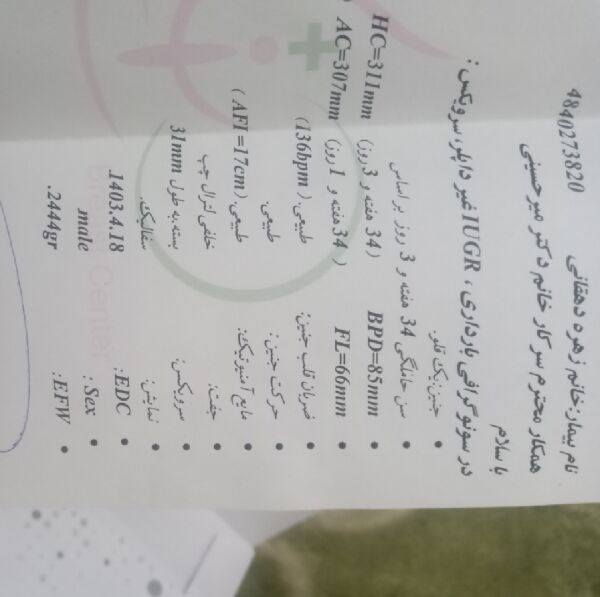 4840273820
نام بیمار: خانم زهره دهقانی
همکار محترم سرکار خانم دکتر میرحسینی
با سلام
در سونوگرافی بارداری، IUGR غیر داپلر، سرویکس:
• جنین: یک قلو.
• سن حاملگی 34 هفته و 3 روز بر اساس
• BPD=85mm (34 هفته و 3 روز) HC=311mm
• FL=66mm (34 هفته و 1 روز) AC=307mm
• ضربان قلب جنین: طبیعی. (136bpm)
• حرکت جنین: طبیعی.
• مایع آمنیوتیک: طبیعی. (AFI=17cm)
• جفت: خلفی لترال چپ
• سرویکس: بسته به طول 31mm
• نمایش: سفالیک.
• EDC: 1403.4.18.
• Sex: male
• EFW: 2444gr.
Breast Center